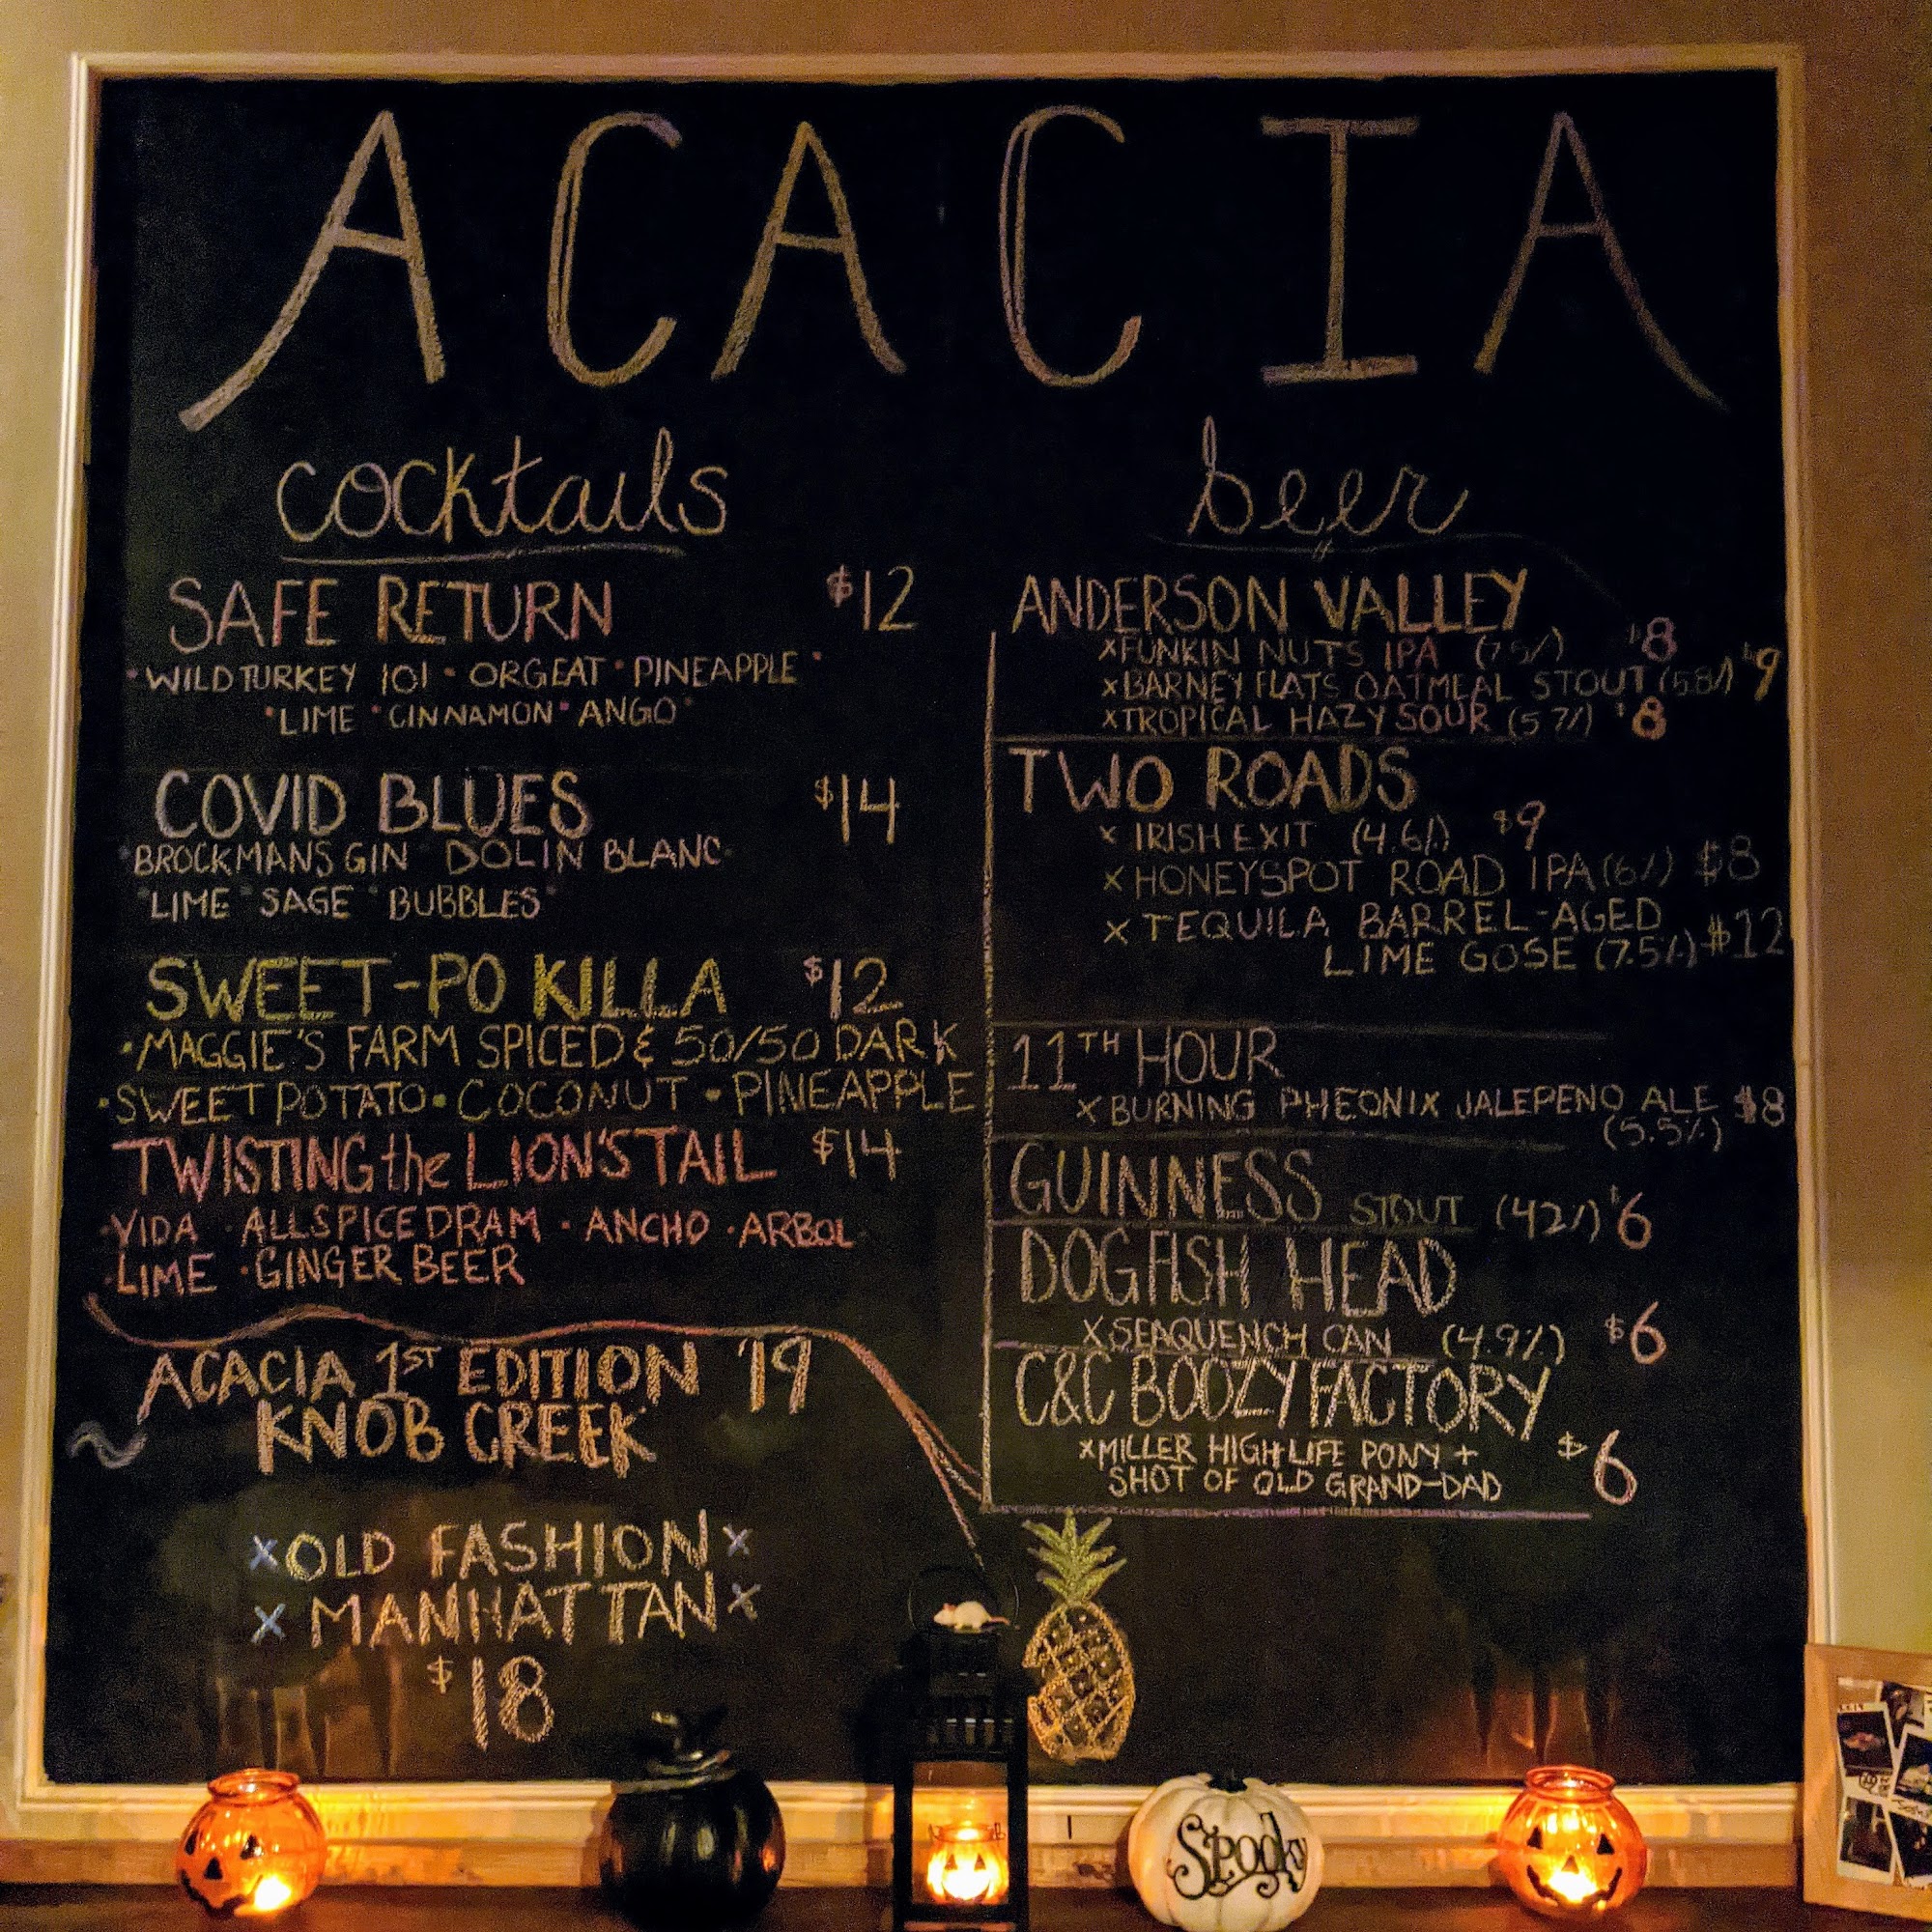 ACACIA
cocktails
SAFE RETURN $12
WILD TURKEY 101 • ORGEAT • PINEAPPLE •
• LIME • CINNAMON • ANGO •
COVID BLUES $14
• BROCKMANS GIN • DOLIN BLANC •
• LIME • SAGE • BUBBLES •
SWEET-PO KILLA $12
• MAGGIE'S FARM SPICED & 50/50 DARK
• SWEET POTATO • COCONUT • PINEAPPLE
TWISTING the LION'S TAIL $14
• VIDA • ALLSPICE DRAM • ANCHO • ARBOL
• LIME • GINGER BEER
ACACIA 1ST EDITION '19
~ KNOB CREEK
x OLD FASHION x
x MANHATTAN x
$18
beer
ANDERSON VALLEY
x FUNKIN NUTS IPA (7.5%) $8
x BARNEY FLATS OATMEAL STOUT (5.8%) $9
x TROPICAL HAZY SOUR (5.7%) $8
TWO ROADS
x IRISH EXIT (4.6%) $9
x HONEYSPOT ROAD IPA (6%) $8
x TEQUILA BARREL-AGED
LIME GOSE (7.5%) $12
11TH HOUR
x BURNING PHEONIX JALEPENO ALE $8
(5.5%)
GUINNESS STOUT (4.2%) $6
DOGFISH HEAD
x SEAQUENCH CAN (4.9%) $6
C&C BOOZY FACTORY
x MILLER HIGH LIFE PONY + $6
SHOT OF OLD GRAND-DAD
Spooky